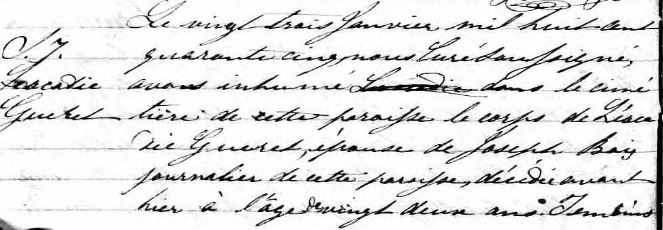 Le vingt trois Janvier mil huit cent
S 7. quarante cinq, nous Curé Soussigné,
Leacadie avons inhumé Leacadie dans le cimé
Gueret tière de cette paroisse le corps de Léaca
die Gueret, épouse de Joseph Bois
journalier de cette paroisse, décédée avant
hier à l'âge de vingt deux ans. Temoins